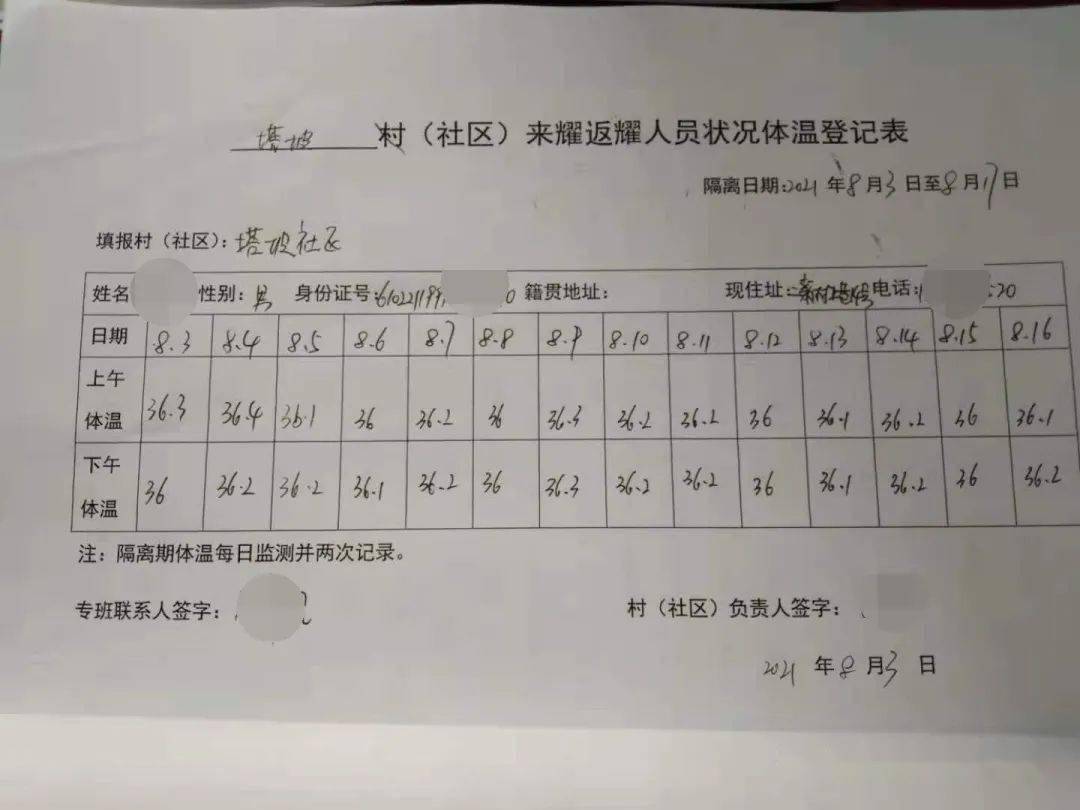 塔坡村（社区）来耀返耀人员状况体温登记表
隔离日期:2021年8月3日至8月17日
填报村（社区）：塔坡社区
姓名 性别：男 身份证号：61022119 0 籍贯地址： 现住址： 电话：1 520
日期 8.3 8.4 8.5 8.6 8.7 8.8 8.9 8.10 8.11 8.12 8.13 8.14 8.15 8.16
上午体温 36.3 36.4 36.1 36 36.2 36 36.3 36.2 36.2 36 36.1 36.2 36 36.1
下午体温 36 36.2 36.2 36.1 36.2 36 36.3 36.2 36.2 36 36.1 36.2 36 36.2
注：隔离期体温每日监测并两次记录。
专班联系人签字： 村（社区）负责人签字：
2021年8月3日